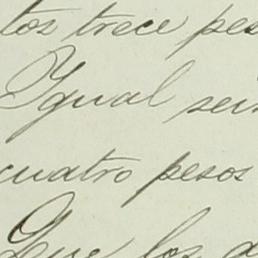 tos trece pes
Igual sei
cuatro pesos
Que los